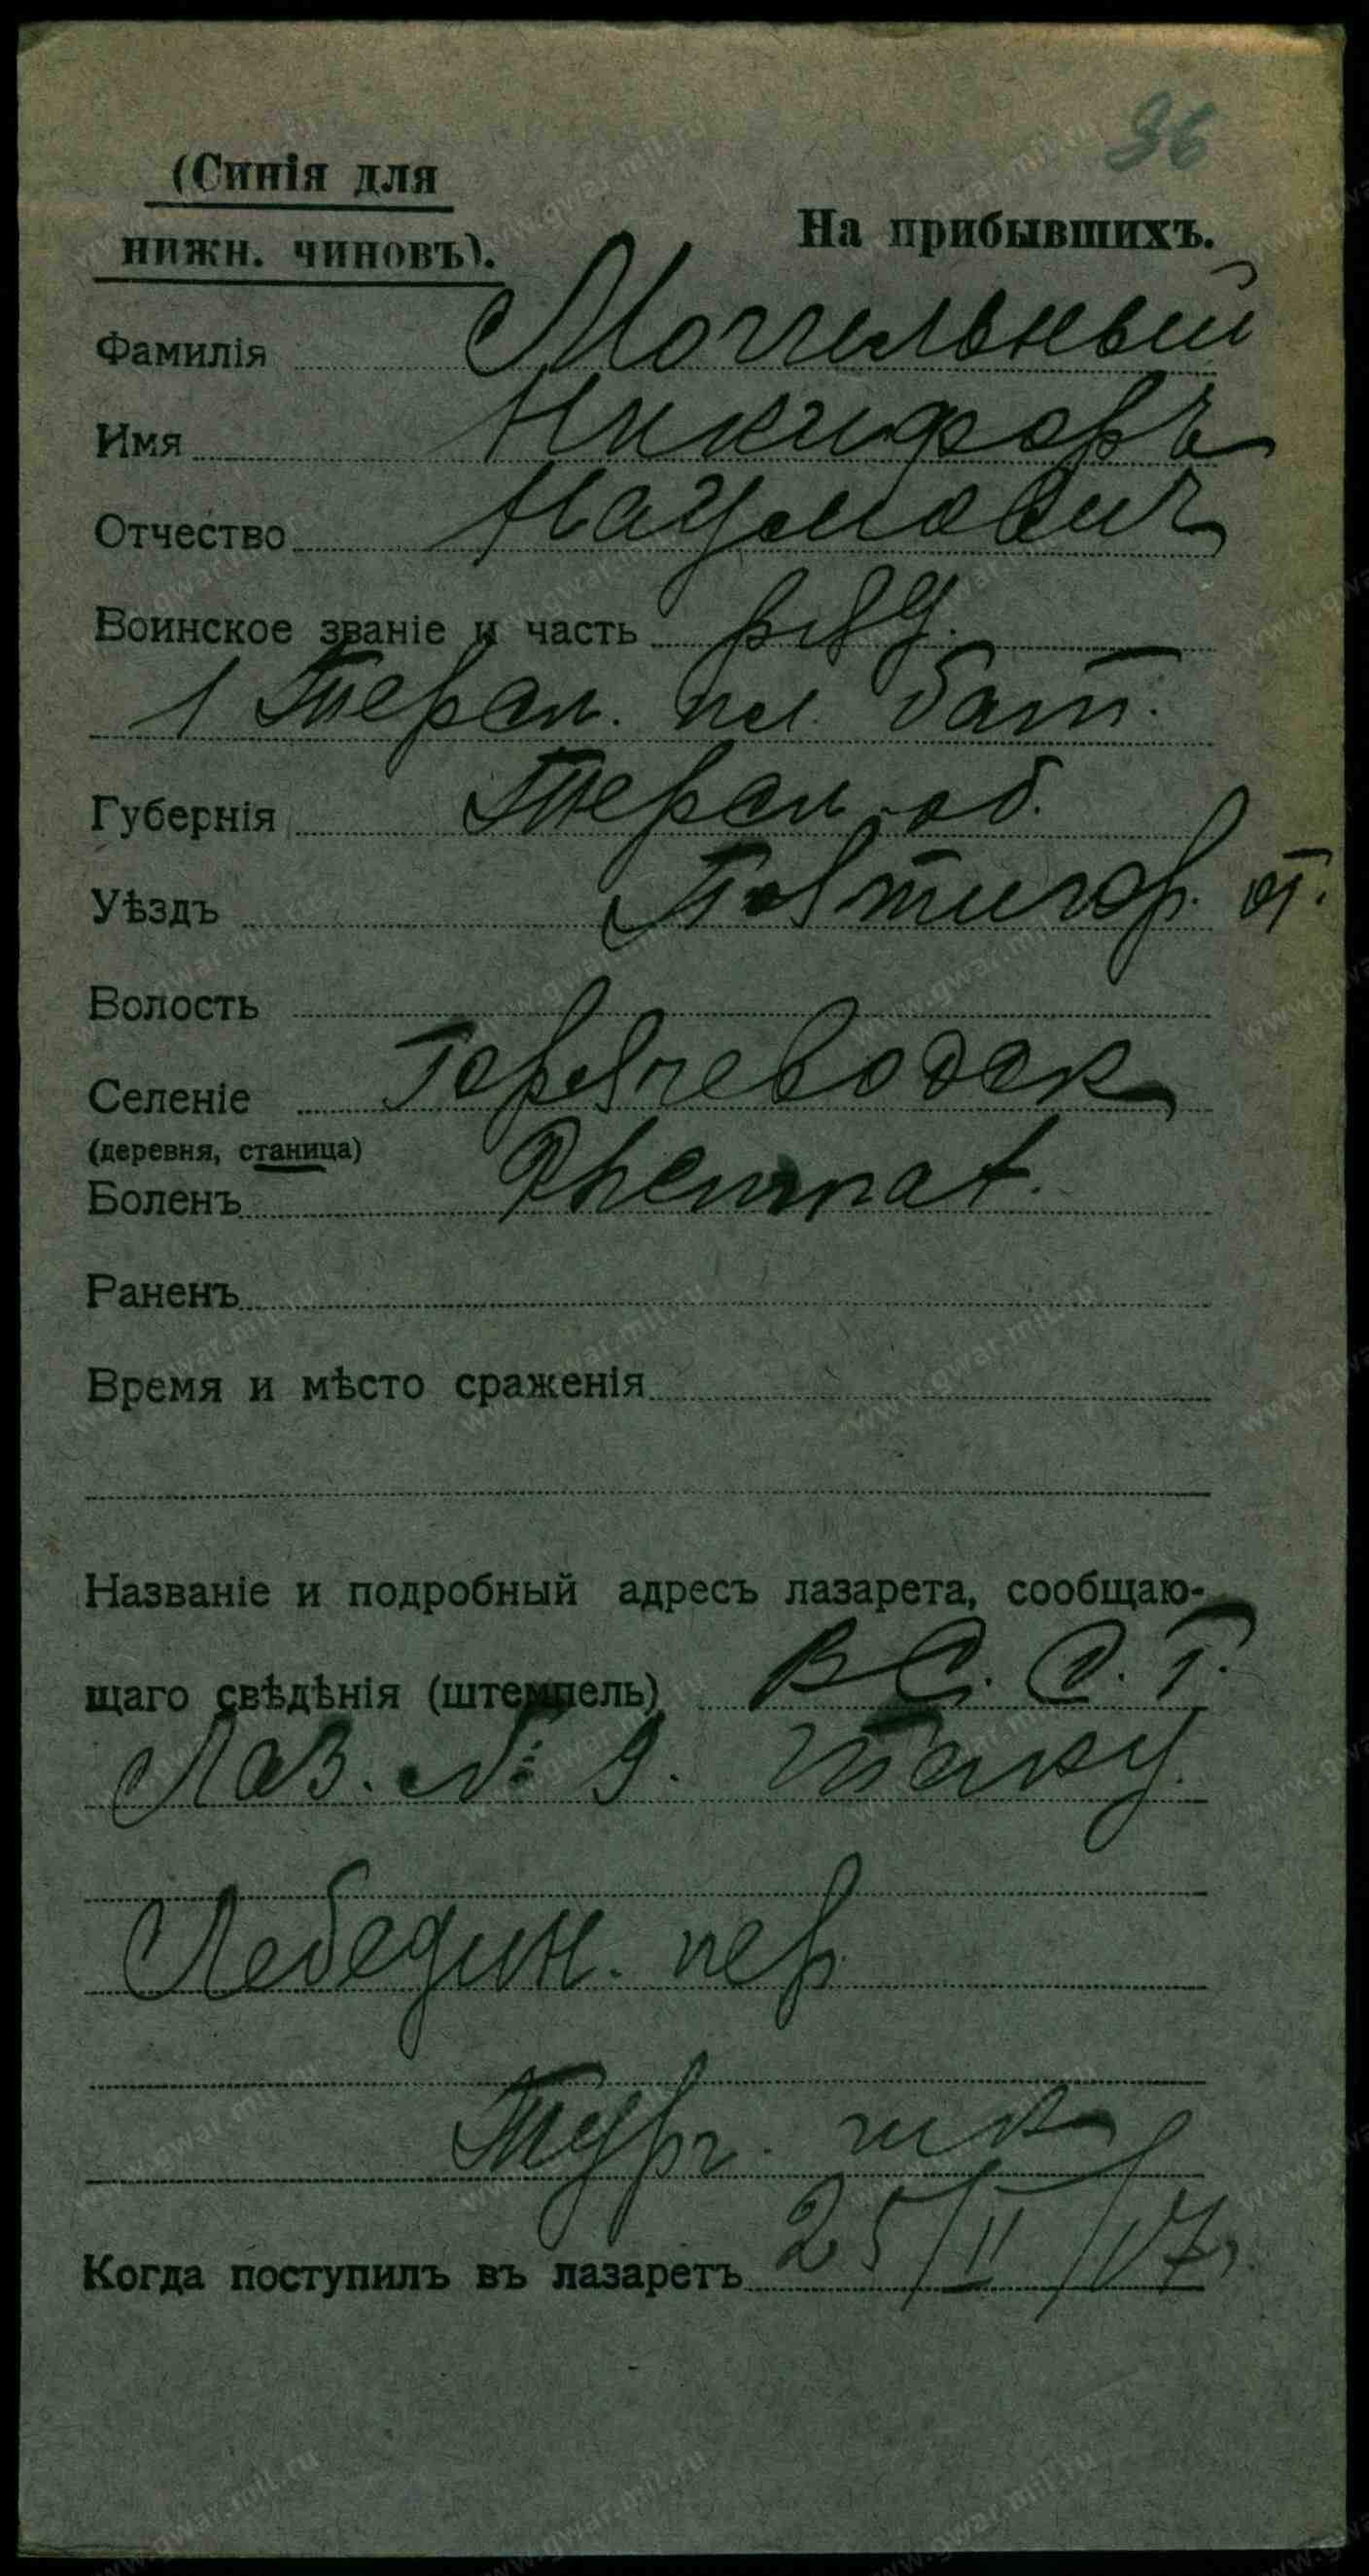 36
(Синія для
нижн. чиновъ).
На прибывшихъ.
Фамилія Могильный
Имя Никифоръ
Отчество Наумович
Воинское званіе и часть ряд.
1 Терск. пл. бат.
Губернія Терск. об.
Уѣздъ Пятигор. от.
Волость
Селеніе Горячеводск
(деревня, станица)
Боленъ Rheumat.
Раненъ
Время и мѣсто сраженія
Названіе и подробный адресъ лазарета, сообщаю-
щаго свѣдѣнія (штемпель) В С. С. Г.
Лаз. № 9.
Лебедин. пер.
Тург. шк
Когда поступилъ въ лазаретъ 25/II/17г.